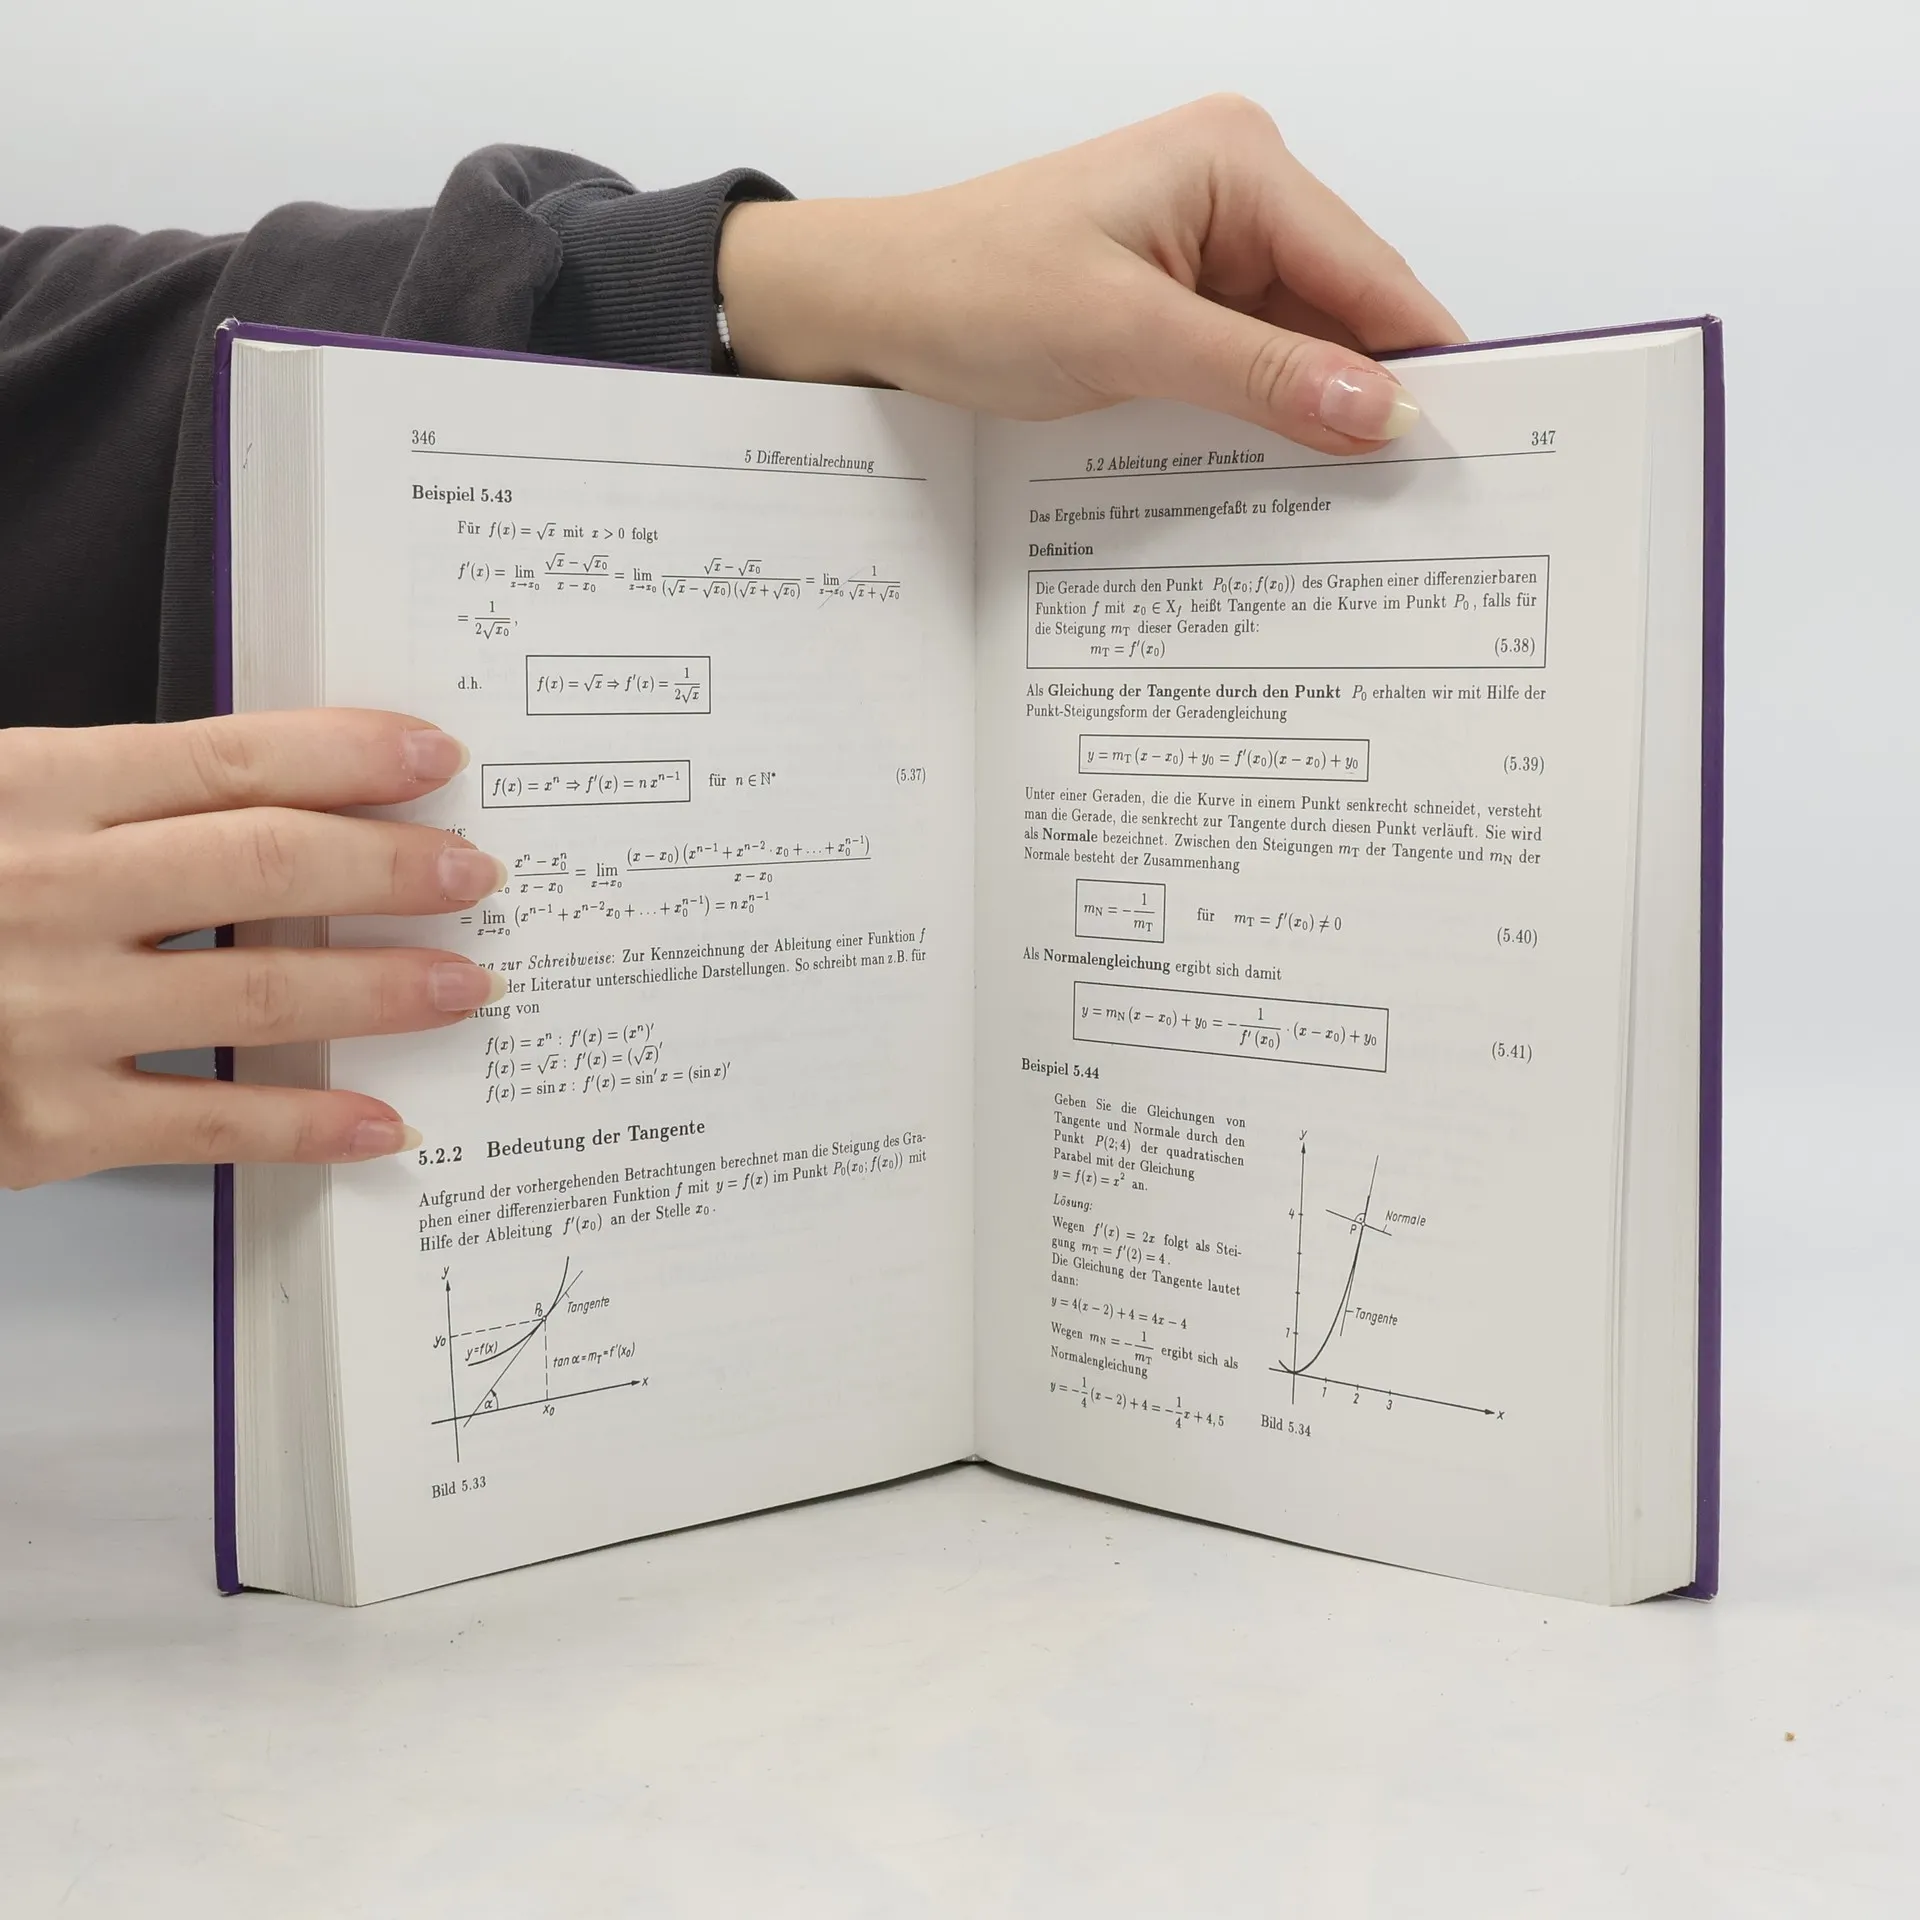 346
5 Differentialrechnung
Beispiel 5.43
Für f(x) = √x mit x > 0 folgt
f′(x) = lim x→x₀ (√x − √x₀)/(x − x₀) = lim x→x₀ (√x − √x₀)/((√x − √x₀)(√x + √x₀)) = lim x→x₀ 1/(√x + √x₀)
= 1/(2√x₀),
d.h. f(x) = √x ⇒ f′(x) = 1/(2√x)
f(x) = xⁿ ⇒ f′(x) = n xⁿ⁻¹ für n ∈ ℕ* (5.37)
is:
x₀ (xⁿ − x₀ⁿ)/(x − x₀) = lim x→x₀ ((x − x₀)(xⁿ⁻¹ + xⁿ⁻² · x₀ + ... + x₀ⁿ⁻¹))/(x − x₀)
= lim x→x₀ (xⁿ⁻¹ + xⁿ⁻²x₀ + ... + x₀ⁿ⁻¹) = n x₀ⁿ⁻¹
zur Schreibweise: Zur Kennzeichnung der Ableitung einer Funktion f
der Literatur unterschiedliche Darstellungen. So schreibt man z.B. für
itung von
f(x) = xⁿ : f′(x) = (xⁿ)′
f(x) = √x : f′(x) = (√x)′
f(x) = sin x : f′(x) = sin′ x = (sin x)′
5.2.2 Bedeutung der Tangente
Aufgrund der vorhergehenden Betrachtungen berechnet man die Steigung des Gra-
phen einer differenzierbaren Funktion f mit y = f(x) im Punkt P₀(x₀; f(x₀)) mit
Hilfe der Ableitung f′(x₀) an der Stelle x₀.
y
P₀
Tangente
y₀
y=f(x)
tan α = m_T = f′(x₀)
α
x₀
x
Bild 5.33
5.2 Ableitung einer Funktion
347
Das Ergebnis führt zusammengefaßt zu folgender
Definition
Die Gerade durch den Punkt P₀(x₀; f(x₀)) des Graphen einer differenzierbaren
Funktion f mit x₀ ∈ X_f heißt Tangente an die Kurve im Punkt P₀, falls für
die Steigung m_T dieser Geraden gilt:
m_T = f′(x₀) (5.38)
Als Gleichung der Tangente durch den Punkt P₀ erhalten wir mit Hilfe der
Punkt-Steigungsform der Geradengleichung
y = m_T (x − x₀) + y₀ = f′(x₀)(x − x₀) + y₀ (5.39)
Unter einer Geraden, die die Kurve in einem Punkt senkrecht schneidet, versteht
man die Gerade, die senkrecht zur Tangente durch diesen Punkt verläuft. Sie wird
als Normale bezeichnet. Zwischen den Steigungen m_T der Tangente und m_N der
Normale besteht der Zusammenhang
m_N = −1/m_T für m_T = f′(x₀) ≠ 0 (5.40)
Als Normalengleichung ergibt sich damit
y = m_N (x − x₀) + y₀ = −1/f′(x₀) · (x − x₀) + y₀ (5.41)
Beispiel 5.44
Geben Sie die Gleichungen von
Tangente und Normale durch den
Punkt P(2; 4) der quadratischen
Parabel mit der Gleichung
y = f(x) = x² an.
Lösung:
Wegen f′(x) = 2x folgt als Stei-
gung m_T = f′(2) = 4.
Die Gleichung der Tangente lautet
dann:
y = 4(x − 2) + 4 = 4x − 4
Wegen m_N = −1/m_T ergibt sich als
Normalengleichung
y = −1/4 (x − 2) + 4 = −1/4 x + 4,5
y
4
P
Normale
Tangente
1
1 2 3
x
Bild 5.34